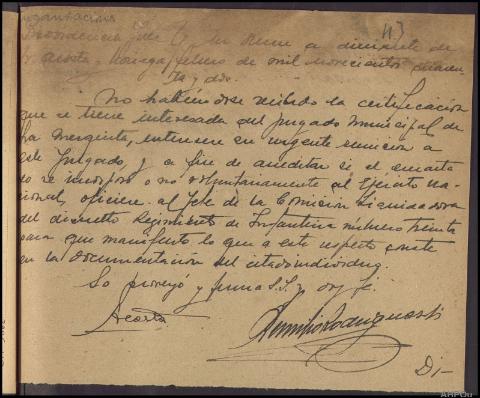 113
Providencia Juez Sr. En Orense a diecisiete de
Acosta Noriega, febrero de mil novecientos cuaren-
ta y dos.
No habiéndose recibido la certificación
que se tiene interesada del Juzgado Municipal de
La Mezquita, interesese en urgente remision a
este Juzgado, y a fin de acreditar si el encarta
do se incorporo o no voluntariamente al Ejército na-
cional, oficiese al Jefe de la Comisión Liquidadora
del disuelto Regimiento de Infantina número treinta
para que manifieste lo que a este respecto conste
en la documentación del citado individuo.
Lo proveyó y firma S.S. y doy fé.
Acosta
Di-
AHPOu